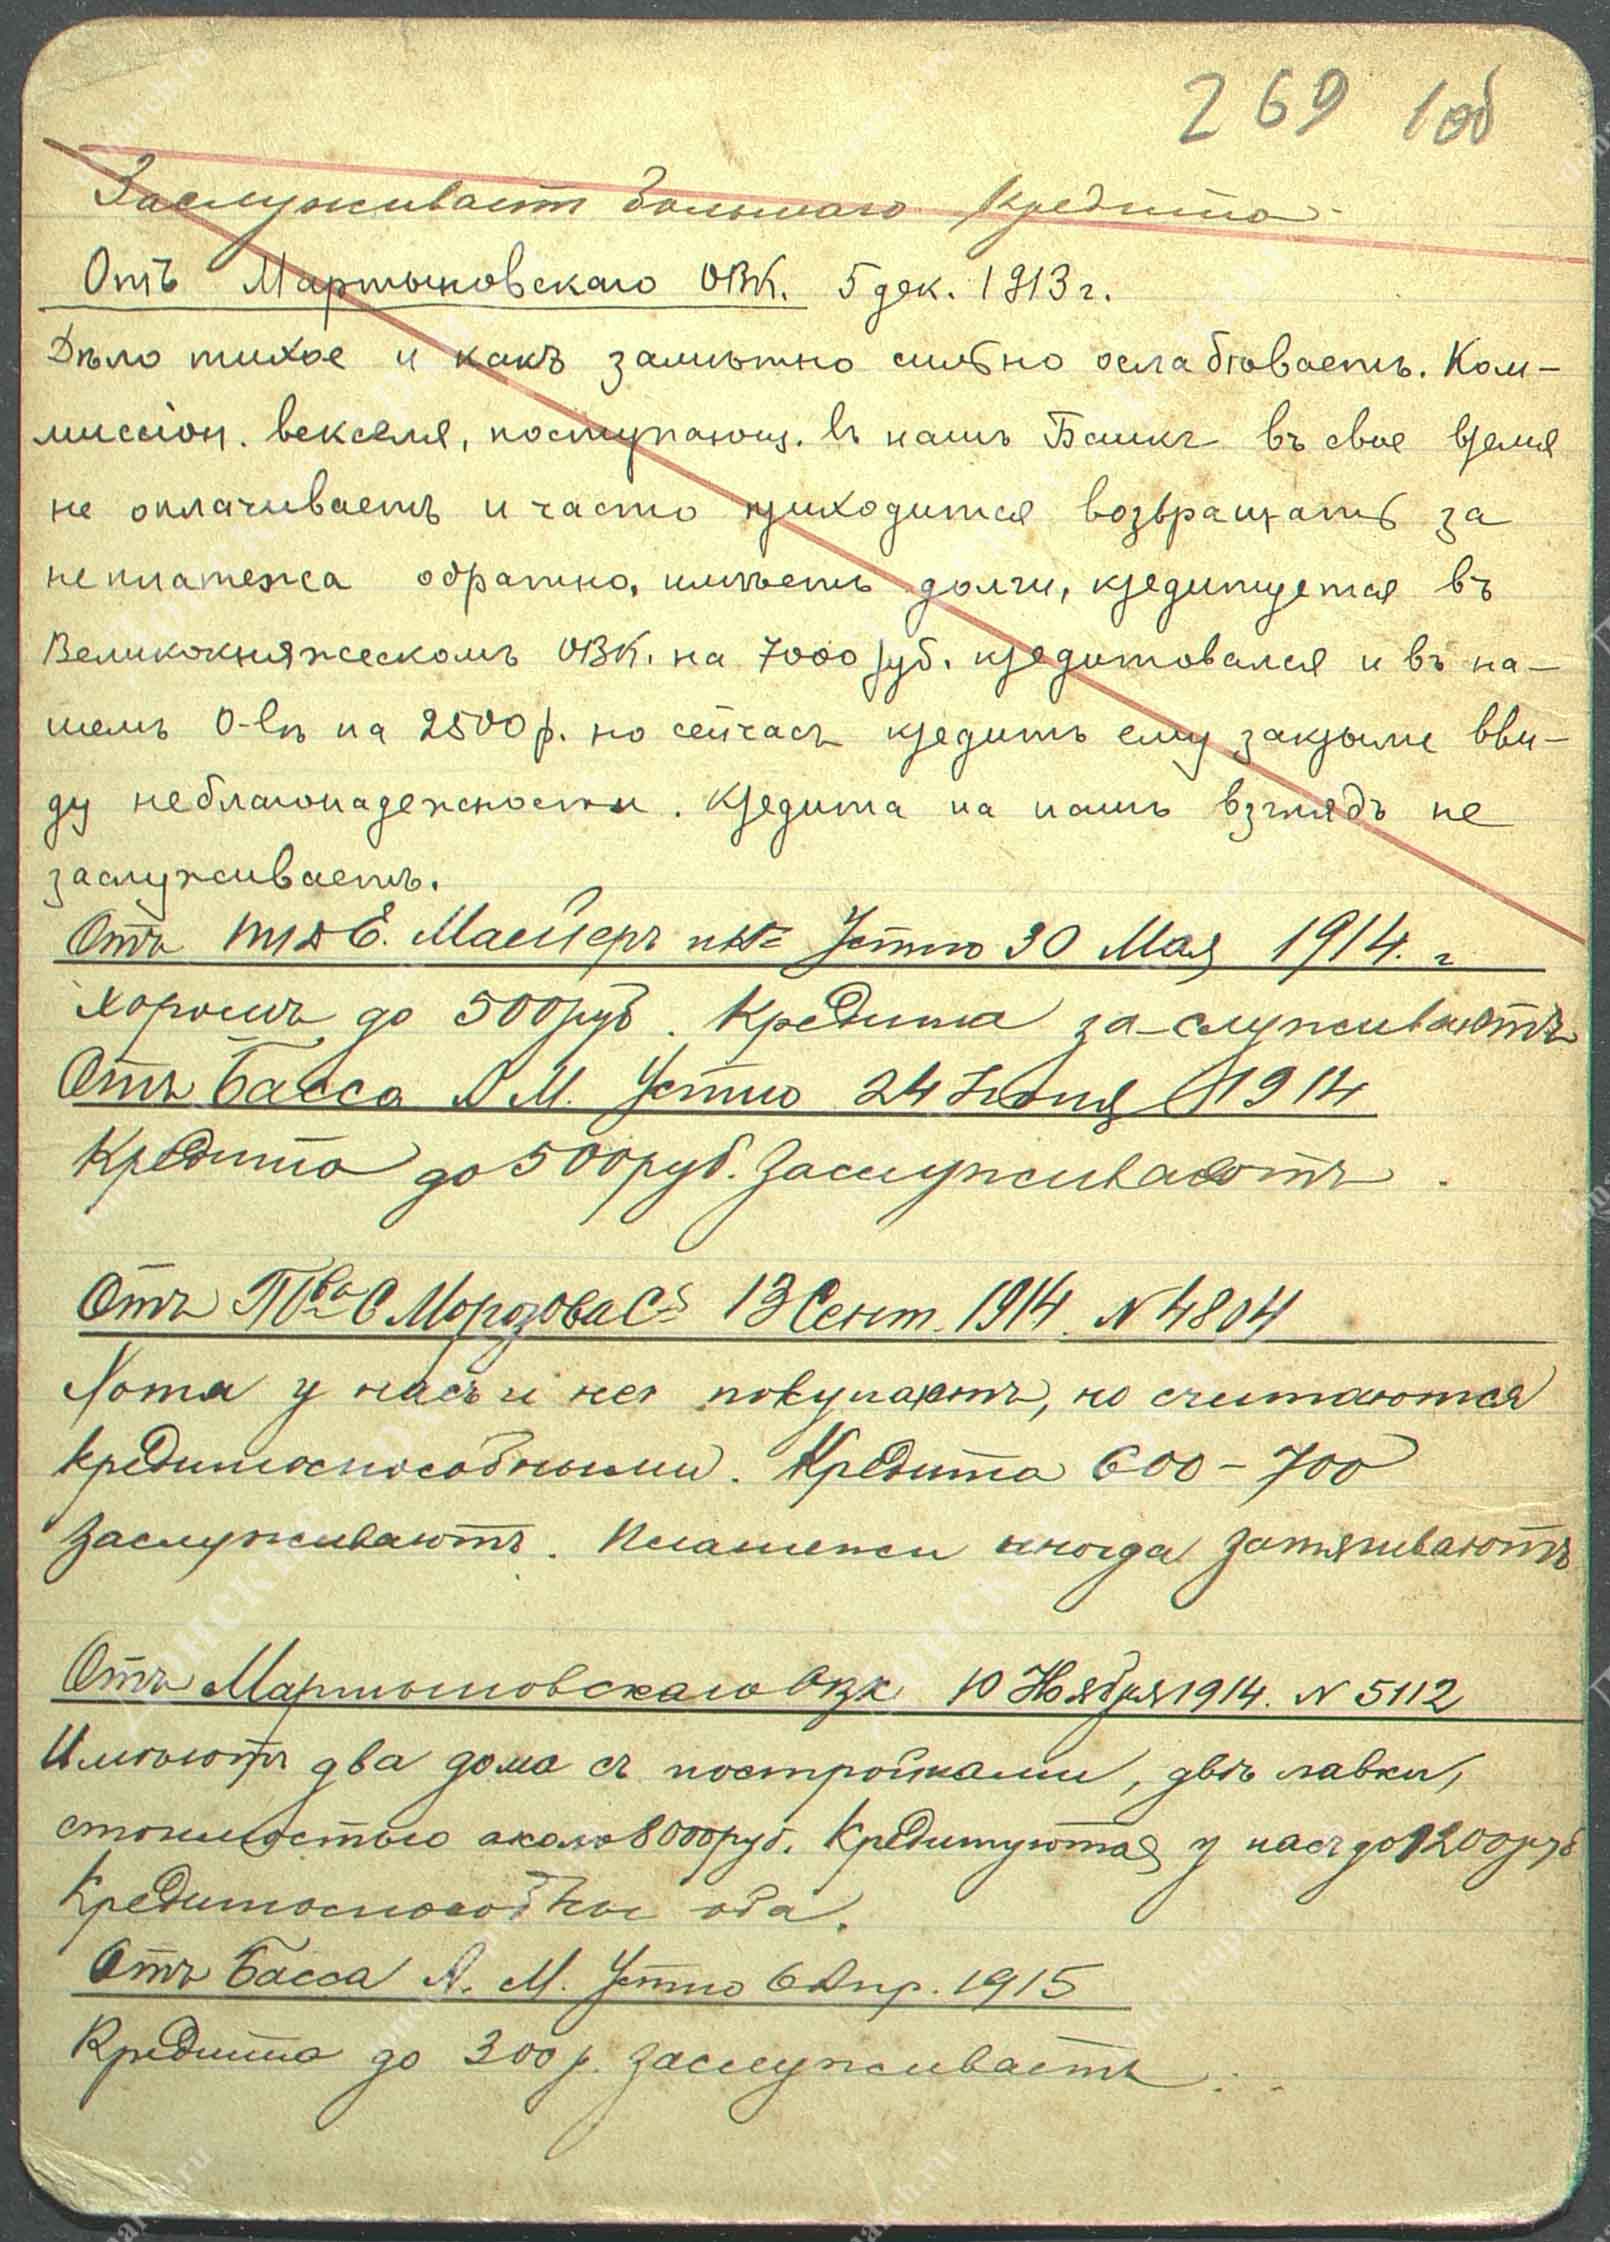 269 1об
Заслуживает большаго кредита.
Отъ Мартыновскаго ОВК. 5 дек. 1913 г.
Дѣло тихое и какъ замѣтно сильно ослабѣваетъ. Ком-
миссіон. векселя, поступающ. въ нашъ Банкъ въ свое время
не оплачиваетъ и часто приходится возвращать за
неплатежа обратно, имѣетъ долги, кредитуется въ
Великокняжескомъ ОВК. на 7000 руб. кредитовался и въ на-
шемъ О-вѣ на 2500 р. но сейчасъ кредитъ ему закрыли вви-
ду неблагонадежности. Кредита на нашъ взглядъ не
заслуживаетъ.
Отъ Т/Д Е. Майеръ Устно 30 Мая 1914. г
Хорошъ до 500 руб. Кредита за-служиваютъ
Отъ Басса А М. Устно 24 Іюня 1914
Кредита до 500 руб. Заслуживаютъ.
Отъ Т-ва С Морозова С-ъ 13 Сент. 1914. N 4804
Хотя у насъ и не покупаютъ, но считаются
кредитоспособными. Кредита 600-700
заслуживаютъ. Платежи иногда затягиваютъ
Отъ Мартыновскаго Овк 10 Ноября 1914. N 5112
Имѣютъ два дома съ постройками, двѣ лавки,
стоимостью около 8000 руб. Кредитуются у насъ до 1200 руб
Кредитоспособны оба.
Отъ Басса А. М. Устно 6 Апр. 1915
Кредита до 300 р. заслуживаетъ.